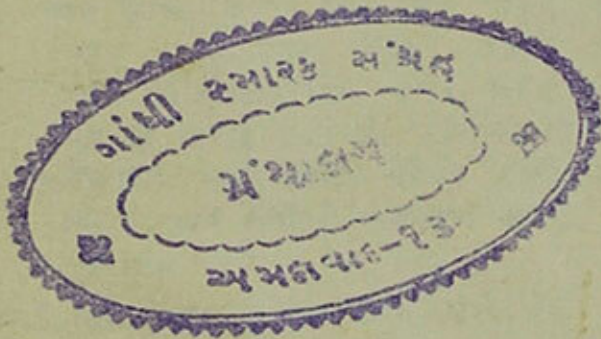 ગાંધી સ્મારક સંગ્રહ
ગ્રંથાલય
અમદાવાદ-૧૩.